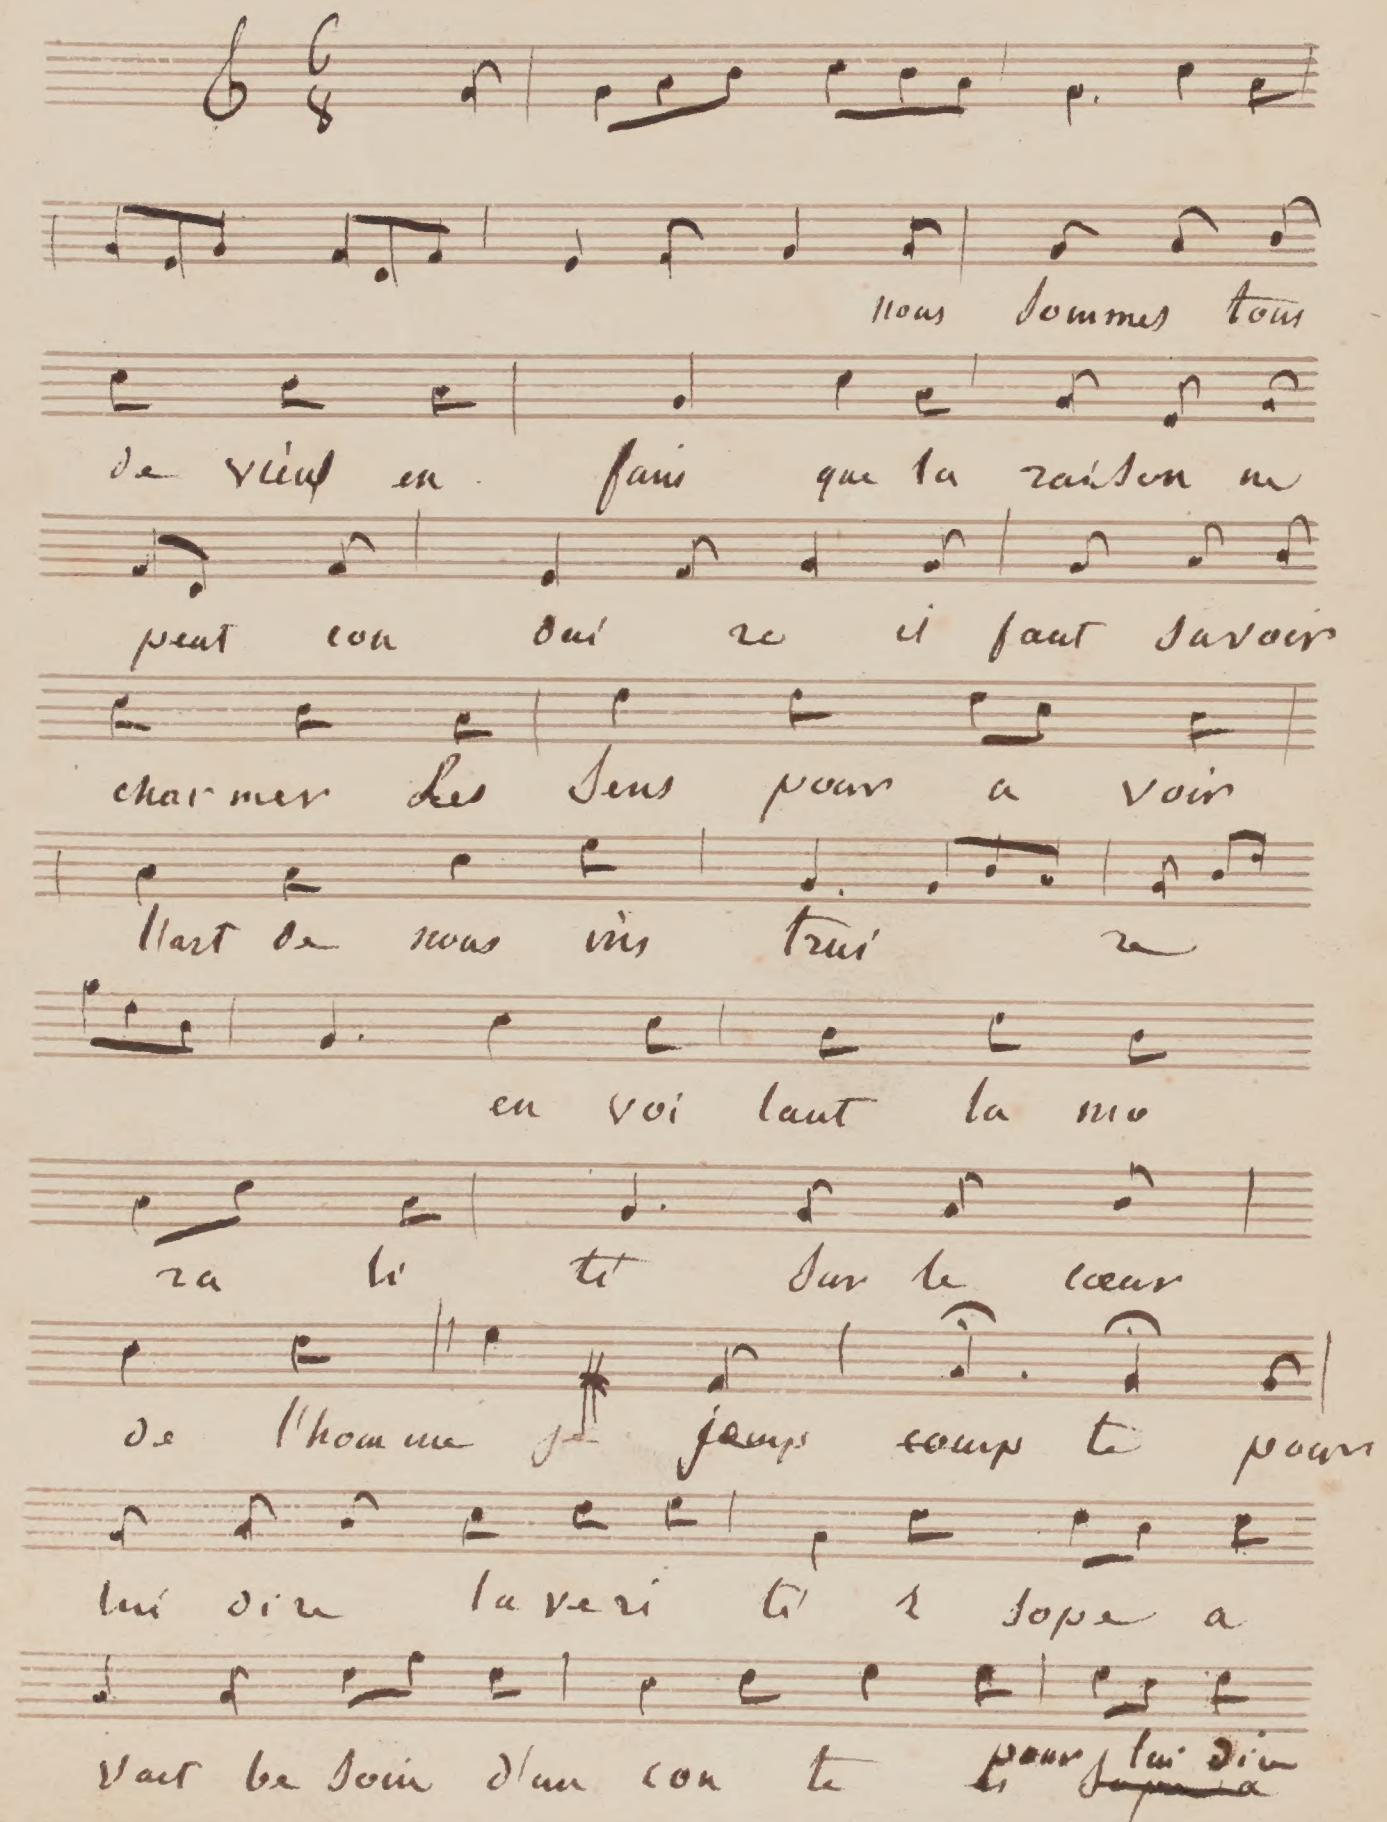 6
8
nous sommes tous
de vieux en fans que la raison ne
peut con dui re il faut savoir
charmer Les sens pour a voir
l'art de nous ins trui re
en voi lant la mo
ra li té sur le cœur
de l'homme comp te pour
lui dire la veri té E sope a
vait be soin d'un con te pour lui dire